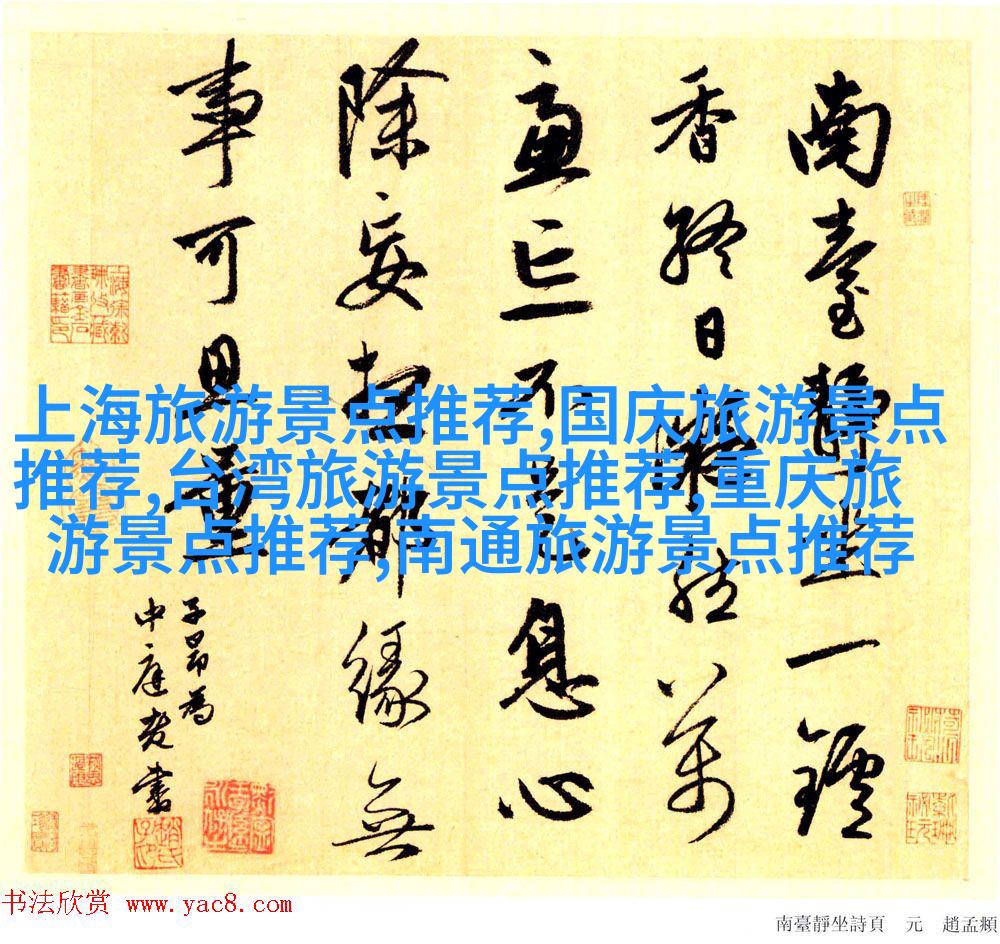 南臺靜坐一鑪
香終日凝然萬
慮亡不是息心
除妄想都緣無
事可思量
子昂為
中庭老書
上海旅游景点推荐,国庆旅游景点
推荐,台湾旅游景点推荐,重庆旅
游景点推荐,南通旅游景点推荐
书法欣赏 www.yac8.com
南臺靜坐詩頁 元 趙孟頫